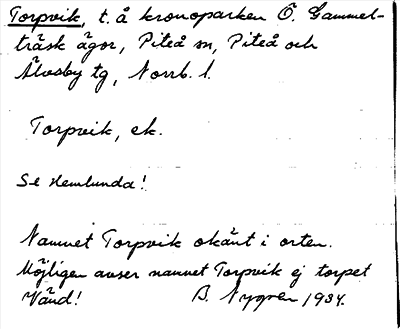 Torpvik, t. å kronoparken Ö. Gammel-
träsk ägor, Piteå sn, Piteå och
Älvsby tg, Norrb. l.
Torpvik, ek.
Se Hemlunda!
Namnet Torpvik okänt i orten.
Möjligen avser namnet Torpvik ej torpet
Vänd! B. Nygren 1934.